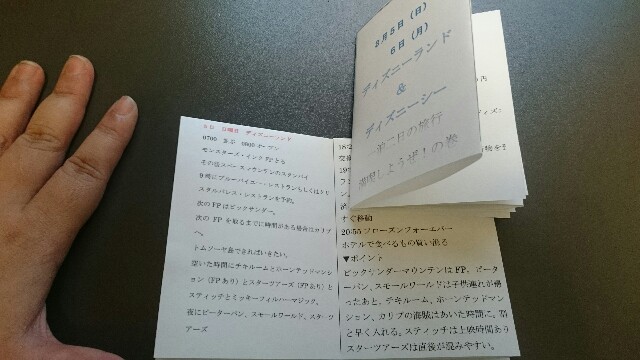 8月5日(日)
6日(月)
ディズニーランド
&
ディズニーシー
二日の旅行
満喫しようぜ!の巻
5日 日曜日 ディズニーランド
0700 集合 0800 オープン
モンスターズ・インクFPとる
その後スペースマウンテンのスタンバイ
9時にブルーバイユー・レストランもしくはクリ
スタルパレス・レストランを予約。
次のFPはビックサンダー。
次の FP を取るまでに時間がある場合はカリブ
へ。
トムソーヤ島できればいきたい。
空いた時間にチキルームとホーンテッドマンシ
ョン(FPあり)とスターツアーズ(FPあり)と
スティッチとミッキーフィルハーマジック。
夜にピーターパン、スモールワールド、スターツ
アーズ
すぐ移動
20:55 フローズンフォーエバー
ホテルで食べるもの買い漁る
▼ポイント
ビックサンダーマウンテンはFP。ピーター
パン、スモールワールドは子供連れが帰
ったあと。チキルーム、ホーンテッドマン
ション、カリブの海賊はあいた時間に。割
と早く入れる。スティッチは上映時間あり
スターツアーズは直後が混みやすい。